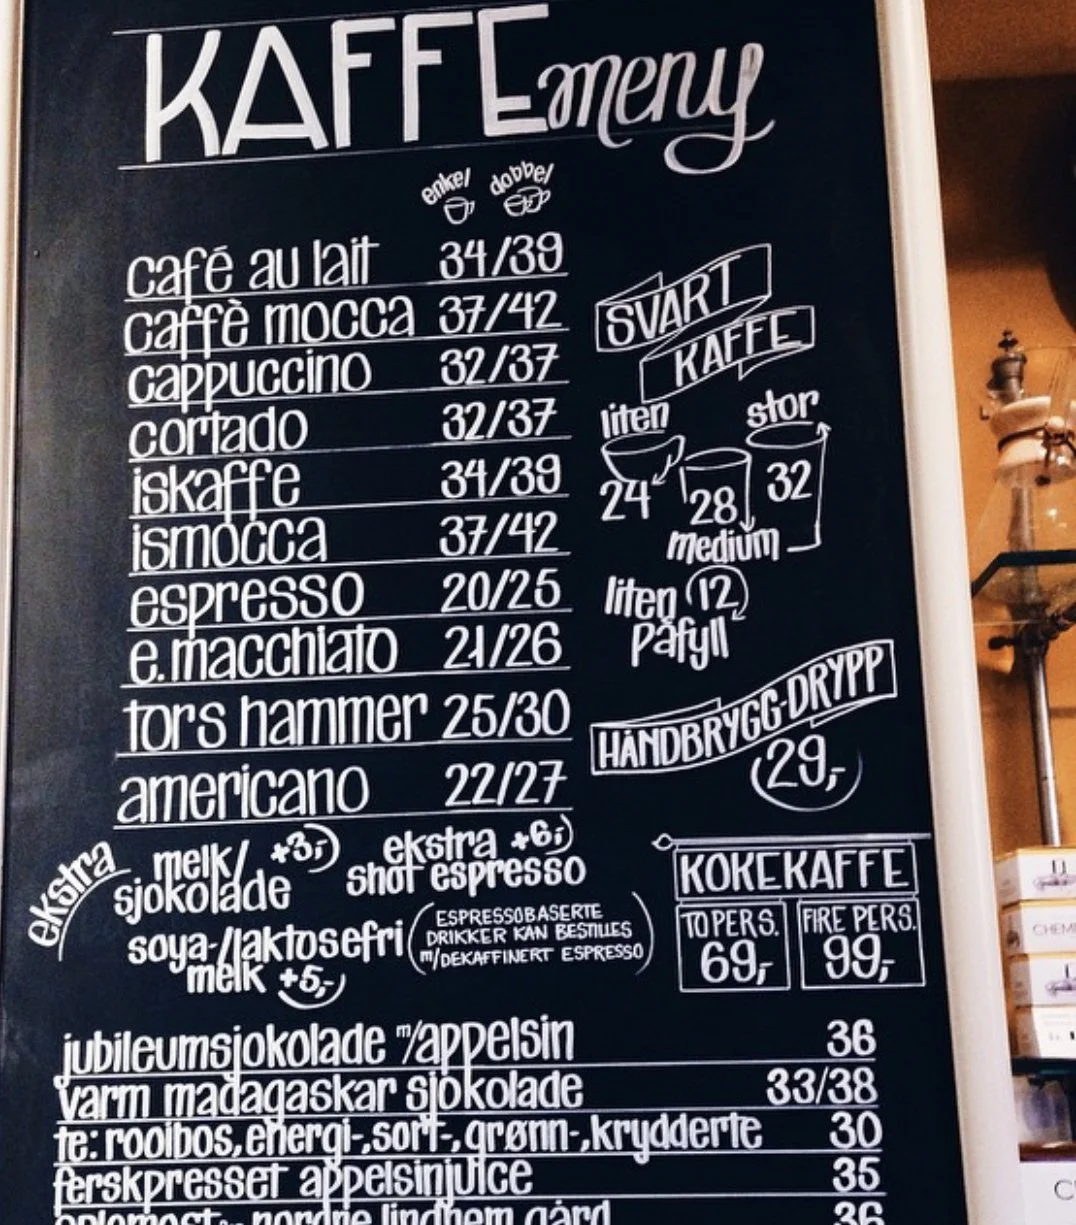 KAFFE meny
enkel dobbel
café au lait 34/39
caffè mocca 37/42
cappuccino 32/37
cortado 32/37
iskaffe 34/39
ismocca 37/42
espresso 20/25
e.macchiato 21/26
tors hammer 25/30
americano 22/27
SVART
KAFFE
liten stor
24 28 32
medium
liten 12
påfyll
HÅNDBRYGG-DRYPP
29,-
ekstra
melk/ +3,-
sjokolade
ekstra +6,-
shot espresso
soya-/laktosefri
melk +5,-
(ESPRESSOBASERTE
DRIKKER KAN BESTILLES
m/DEKAFFINERT ESPRESSO)
KOKEKAFFE
TO PERS. FIRE PERS.
69,- 99,-
jubileumsjokolade m/appelsin 36
varm madagaskar sjokolade 33/38
te: rooibos, energi-, sort-, grønn-, krydderte 30
ferskpresset appelsinjuice 35
eplemost- nordre lindhem gård 36
CHEM